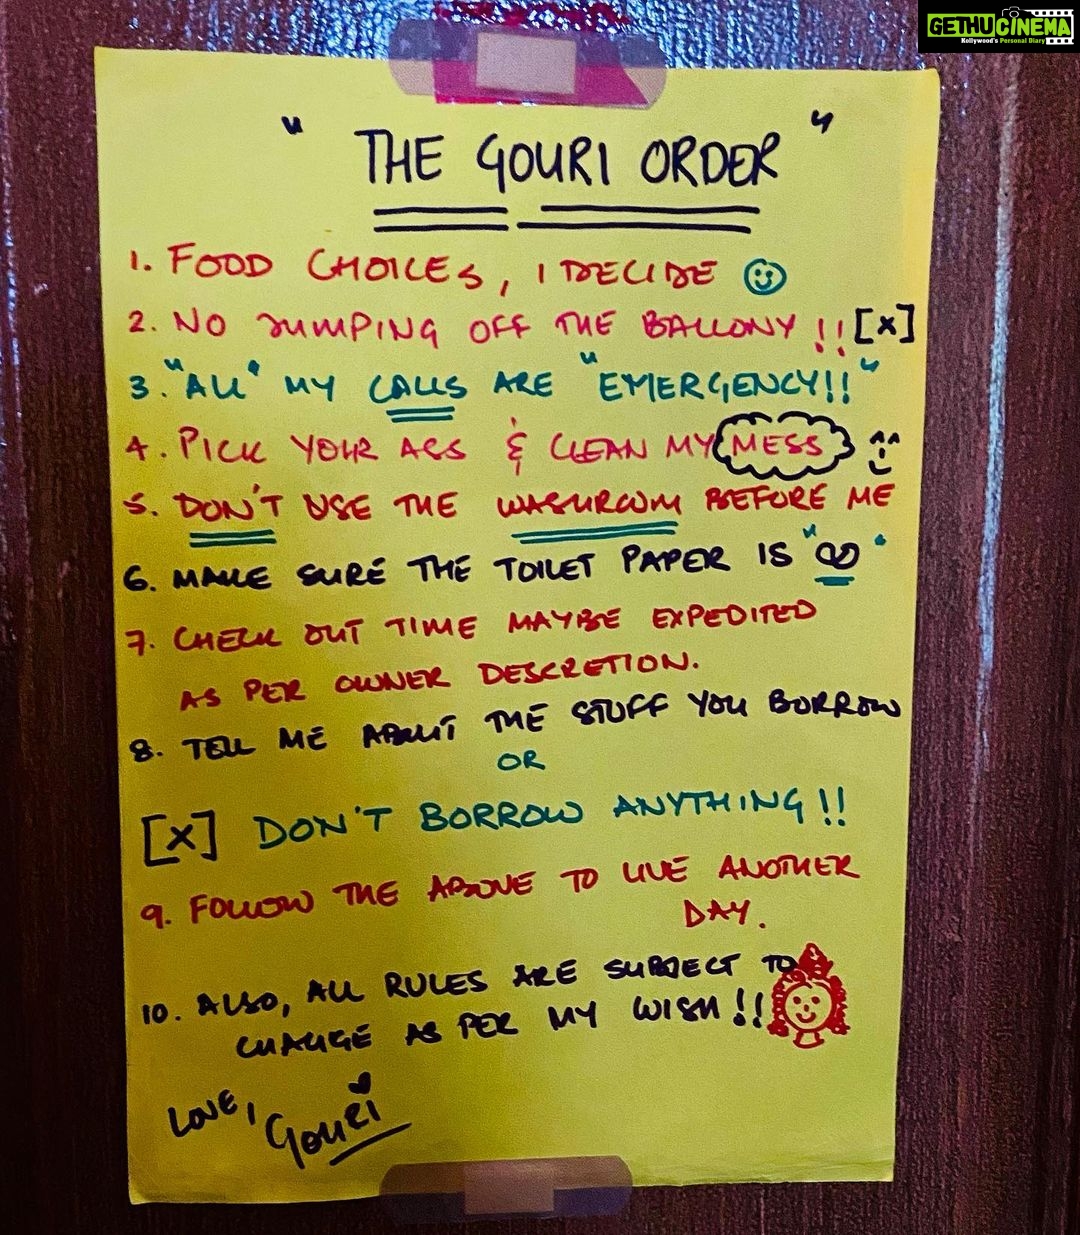 GETHU CINEMA
Kollywood's Personal Diary
" THE GOURI ORDER "
1. FOOD CHOICES, I DECIDE
2. NO JUMPING OFF THE BALCONY !! [X]
3. "ALL" MY CALLS ARE "EMERGENCY!!"
4. PICK YOUR ASS & CLEAN MY MESS
5. DON'T USE THE WASHROOM BEFORE ME
6. MAKE SURE THE TOILET PAPER IS "∞"
7. CHECK OUT TIME MAYBE EXPEDITED
AS PER OWNER DESCRETION.
8. TELL ME ABOUT THE STUFF YOU BORROW
OR
[X] DON'T BORROW ANYTHING!!
9. FOLLOW THE ABOVE TO LIVE ANOTHER
DAY.
10. ALSO, ALL RULES ARE SUBJECT TO
CHANGE AS PER MY WISH!!
LOVE,
GOURI